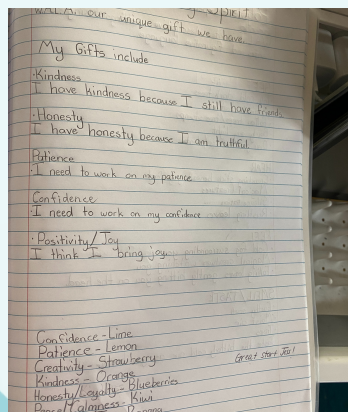 our unique gift we have
My Gifts include
·Kindness
I have kindness because I still have friends.
·Honesty
I have honesty because I am truthful.
Patience
·I need to work on my patience
Confidence
·I need to work on my confidence
·Positivity/Joy
I think I bring joy
Confidence-Lime
Patience-Lemon
Creativity-Strawberry
Kindness-Orange
Great start
Honesty/Loyalty-Blueberries
Peace/Calmness-Kiwi